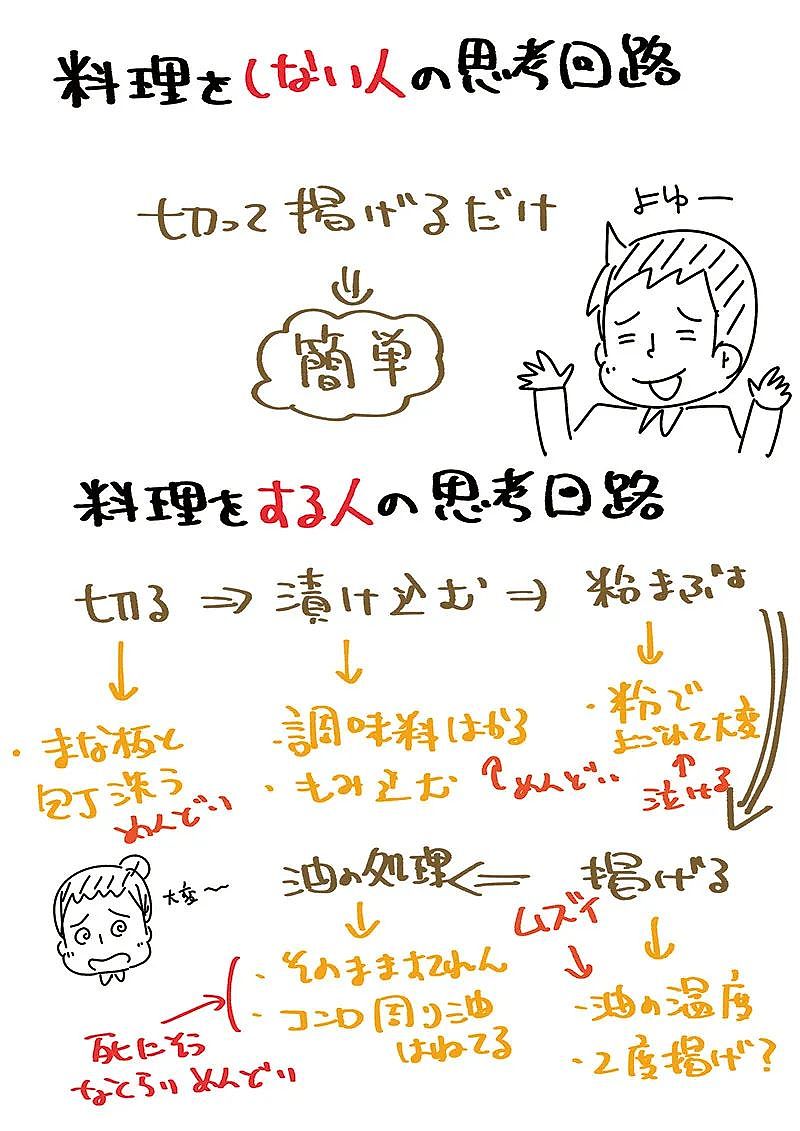 料理をしない人の思考回路
よゆー
切って揚げるだけ
簡単
料理をする人の思考回路
切る ⇒ 漬け込む ⇒ 粉まぶす
・まな板と
包丁洗う
めんどい
・調味料はかる
・もみ込む
めんどい
・粉で
よごれて大変
泣ける
揚げる
ムズイ
・油の温度
・2度揚げ?
油の処理
・そのまますてれん
・コンロ周り油
はねてる
死にそう
なくらいめんどい
大変〜